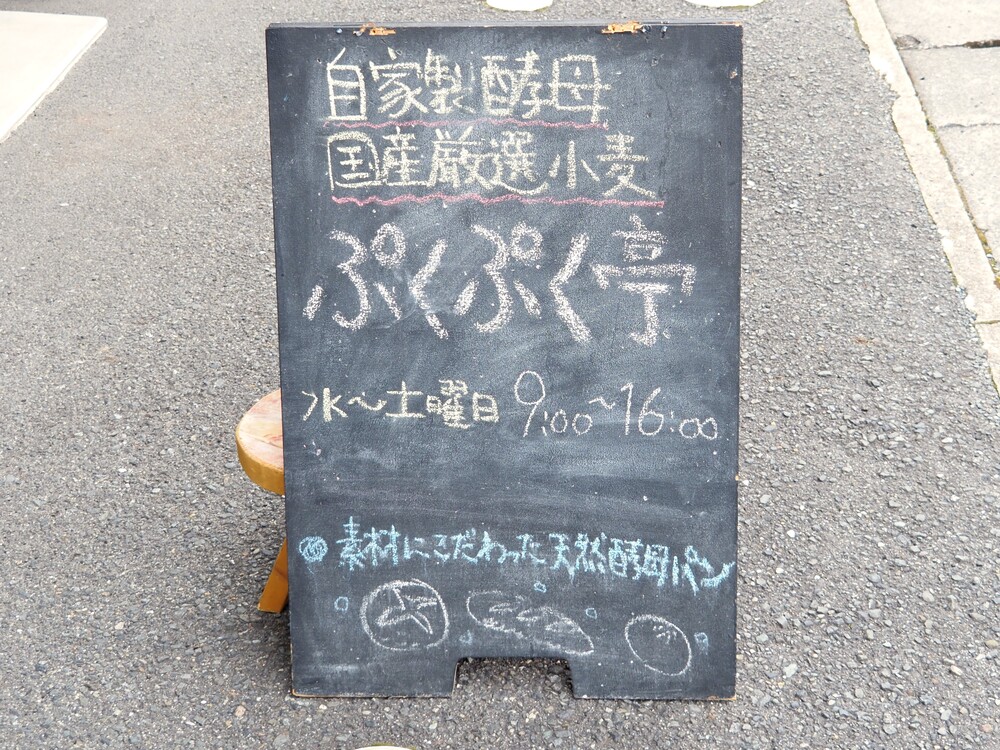 自家製酵母
国産厳選小麦
ぷくぷく亭
水～土曜日 9:00~16:00
素材にこだわった天然酵母パン